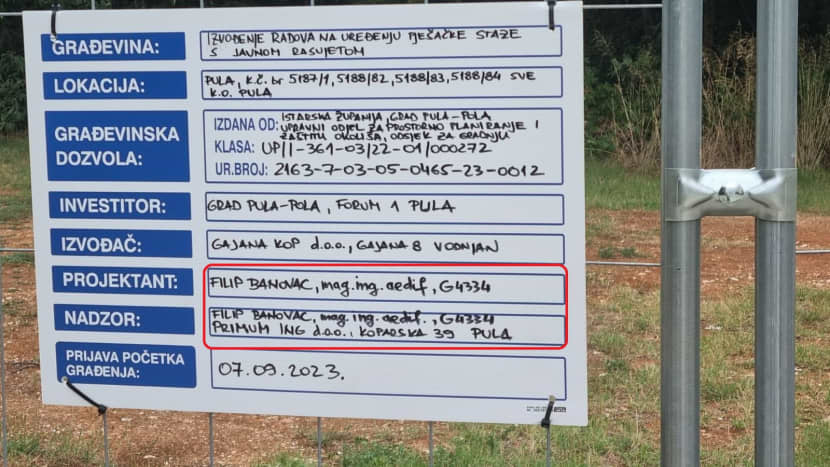 GRAĐEVINA: IZVOĐENJE RADOVA NA UREĐENJU PJEŠAČKE STAZE
S JAVNOM RASVJETOM
LOKACIJA: PULA, K.Č. br 5187/1, 5188/82, 5188/83, 5188/84 SVE
K.O. PULA
GRAĐEVINSKA DOZVOLA:
IZDANA OD: ISTARSKA ŽUPANIJA, GRAD PULA-POLA,
UPRAVNI ODJEL ZA PROSTORNO PLANIRANJE I
ZAŠTITU OKOLIŠA, ODSJEK ZA GRADNJU
KLASA: UP/I-361-03/22-01/000272
UR.BROJ: 2163-7-03-05-0465-23-0012
INVESTITOR: GRAD PULA-POLA, FORUM 1 PULA
IZVOĐAČ: GAJANA KOP d.o.o., GAJANA 8 VODNJAN
PROJEKTANT: FILIP BANOVAC, mag.ing.aedif, G4334
NADZOR: FILIP BANOVAC, mag.ing.aedif., G4334
PRIMUM ING d.o.o., KOPARSKA 39 PULA
PRIJAVA POČETKA
GRAĐENJA: 07.09.2023.